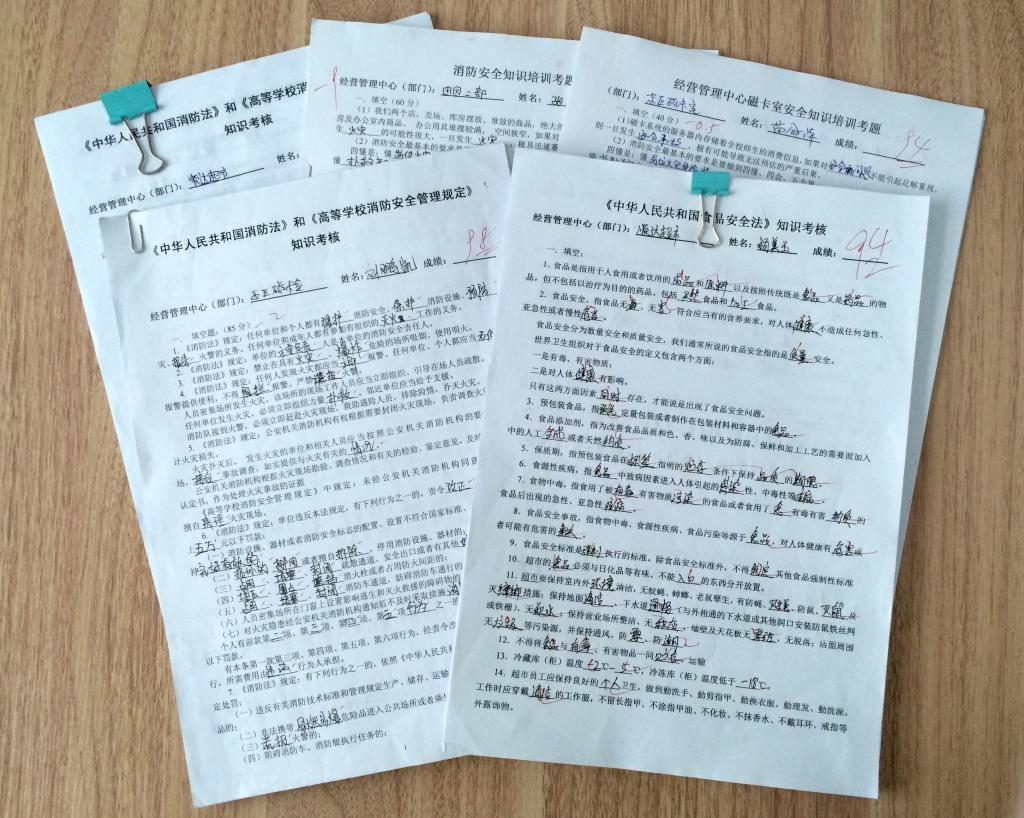 《中华人民共和国消防法》和《高等学校消
知识考核
经营管理中心（部门）： 姓名：
消防安全知识培训考题
经营管理中心（部门）：田园二部 姓名：
一、填空（60分）
（1）我们两个店、卖场、库房摆放、堆放的商品，绝大
房及办公室内商品、办公用具堆摆较满，空间狭窄，如果对
生火灾的可能性很大，一旦发生火灾
（2）消防安全最基本的要求是
四懂：懂
经营管理中心磁卡室安全知识培训考题
经营管理中心（部门）： 姓名： 成绩：94
一、填空（40分） -0.5
（1）磁卡系统的服务器内存储着全校师生的消费信息，如果对 不能引起足够重视，
则一旦发生 ，极有可能导致无法预估的严重后果。
（2）消防安全最基本的要求是要做到四懂、四会、五个第
《中华人民共和国消防法》和《高等学校消防安全管理规定》
知识考核
经营管理中心（部门）： 姓名： 成绩：98
一、填空题：（85分） -2
1.《消防法》规定：任何单位和个人都有维护消防安全、保护消防设施、预防
灾、报告火警的义务。任何单位和成年人都有参加有组织的灭火工作的义务。
2.《消防法》规定：单位的主要负责人是本单位的消防安全责任人。
3.《消防法》规定：禁止在具有火灾、爆炸危险的场所吸烟、使用明火。
4.《消防法》规定：任何人发现火灾都应当立即报警。任何单位、个人都应当
报警提供便利，不得阻拦报警。严禁谎报火警。
人员密集场所发生火灾，该场所的现场工作人员应当立即组织、引导在场人员疏散。
任何单位发生火灾，必须立即组织力量扑救。邻近单位应当给予支援。
消防队接到火警，必须立即赶赴火灾现场，救助遇险人员，排除险情，扑灭火灾。
5.《消防法》规定：公安机关消防机构有权根据需要封闭火灾现场，负责调查火灾
计火灾损失。
火灾扑灭后，发生火灾的单位和相关人员应当按照公安机关消防机构的要
场，接受事故调查，如实提供与火灾有关的情况。
公安机关消防机构根据火灾现场勘验、调查情况和有关的检验、鉴定意见，及时
认定书，作为处理火灾事故的证据
《高等学校消防安全管理规定》中规定：未经公安机关消防机构同意
擅自清理火灾现场。
6.《消防法》规定，单位违反本法规定，有下列行为之一的，责令改正
上五万元以下罚款：
（一）消防设施、器材或者消防安全标志的配置、设置不符合国家标准、
持完好有效的；
或者擅自拆除、停用消防设施、器材的；
疏散通道、安全出口或者有其他
消火栓或者占用防火间距的；
（五） 消防车通道，妨碍消防车通行的
（六）人员密集场所在门窗上设置影响逃生和灭火救援的障碍物的
（七）对火灾隐患经公安机关消防机构通知后不及时采取措施消
个人有前款第二项、第三项、第四项、第五项行为之一的
以下罚款。
有本条第一款第三项、第四项、第五项、第六项行为，经责令改
所需费用由违法行为人承担。
7.《消防法》规定：有下列行为之一的，依照《中华人民共和
定处罚：
（一）违反有关消防技术标准和管理规定生产、储存、运输
品的；
（二）非法携带易燃易爆危险品进入公共场所或者乘坐
（三）谎报火警的；
（四）阻碍消防车、消防艇执行任务的；
1
《中华人民共和国食品安全法》知识考核
经营管理中心（部门）： 姓名：杨美玉 成绩：94
一、填空：
1、食品是指用于人食用或者饮用的成品和原料以及按照传统既是食品又是药品的物
品，但不包括以治疗为目的的药品。包括 食品和加工食品。
2、食品安全，指食品无毒、无害，符合应当有的营养要求，对人体健康不造成任何急性、
亚急性或者慢性危害。
食品安全分为数量安全和质量安全，我们通常所说的食品安全指的是质量安全。
世界卫生组织对于食品安全的定义包含两个方面：
一是有毒、有害物质；
二是对人体健康有影响。
只有这两方面因素同时存在，才能说是出现了食品安全问题。
3、预包装食品，指预先定量包装或者制作在包装材料和容器中的食品。
4、食品添加剂，指为改善食品品质和色、香、味以及为防腐、保鲜和加工工艺的需要而加入
中的人工合成或者天然物质。
5、保质期，指预包装食品在标签指明的贮存条件下保持品质的期限。
6、食源性疾病，指食品中致病因素进入人体引起的感染性、中毒性等疾病。
7、食物中毒，指食用了被有毒有害物质污染的食品或者食用了含有毒有害物质的
食品后出现的急性、亚急性疾病。
8、食品安全事故，指食物中毒、食源性疾病、食品污染等源于食品，对人体健康有危害或
者可能有危害的事故。
9、食品安全标准是强制执行的标准。除食品安全标准外，不得制定其他食品强制性标准
10、超市的食品必须与日化品等有味、不能入口的东西分开放置。
11、超市要保持室内外环境清洁，无蚊蝇、蟑螂、老鼠孳生，有防蝇、灭蝇、防鼠、灭鼠及
灭蟑螂措施；保持地面清洁、下水道通畅（与外相通的下水道或其他洞口安装防鼠铁丝网
或铁栅），无积水；保持营业场所整洁、无 、墙壁及天花板无霉斑、无脱落；店面周围
无垃圾等污染源，并保持通风、防霉、防潮
12、不得将食品与有毒、有害物品一同贮存、运输
13、冷藏库（柜）温度+2℃—5℃，冷冻库（柜）温度低于—18℃。
14、超市员工应保持良好的个人卫生，做到勤洗手、勤剪指甲、勤换衣服、勤理发、勤洗澡。
工作时应穿戴清洁的工作服，不留长指甲、不涂指甲油、不化妆、不抹香水、不戴耳环、戒指等
外露饰物。